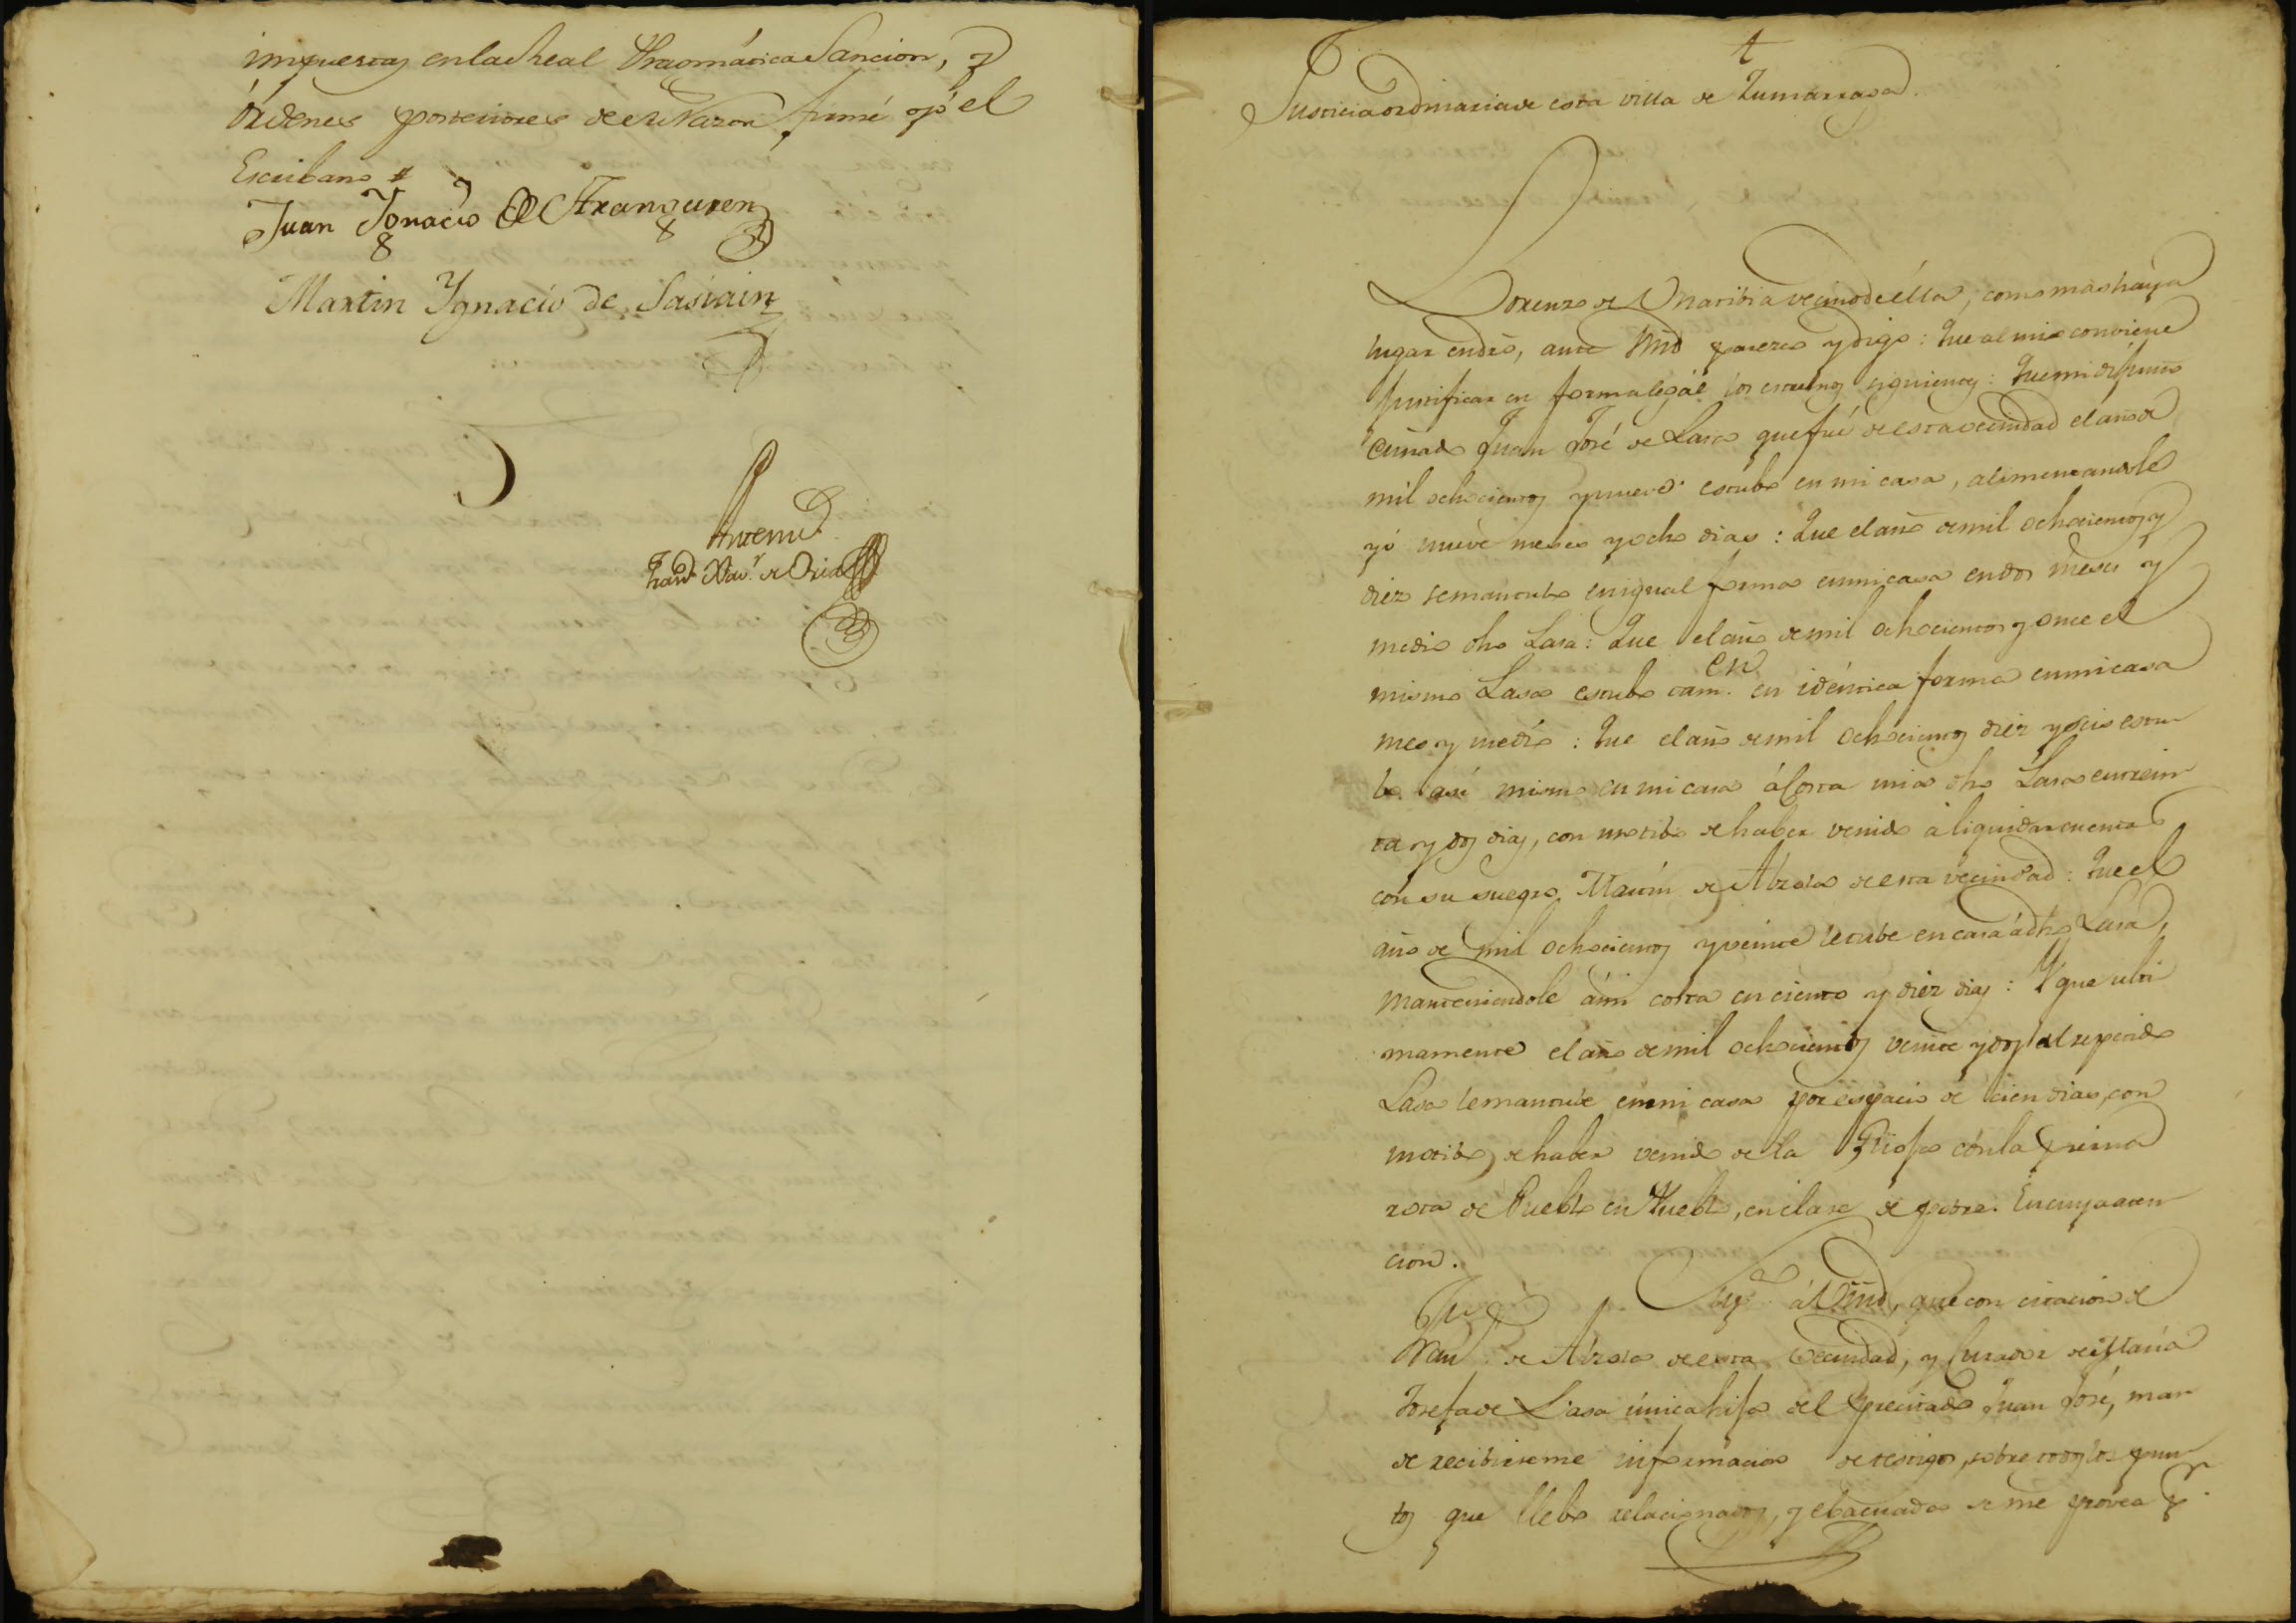 impuestas en la Real Pragmática Sancion, y
órdenes posteriores de esta razon, firmé yo el
Escribano #
Juan Ignacio de Aranguren
Martin Ygnacio de Sasiain
Antemi
Fran.co Xav.r de Oria
Justicia ordinaria de esta villa de Zumarraga.
Lorenzo de Unanibia vecino de ella, como mas haya
lugar en dro, ante Vmd parezco y digo: Que al mio conviene
justificar en forma legál los estremos siguientes: Que mi difunto
cuñado Juan José de Lasa que fué de esta vecindad el año de
mil ochocientos y nueve estubo en mi casa, alimentandole
yó nueve meses y ocho dias: Que el año de mil ochocientos y
diez se mantubo en igual forma en mi casa en dos meses y
medio dho Lasa: Que el año de mil ochocientos y once el
mismo Lasa estubo tam.en en idéntica forma en mi casa
mes y medio: Que el año de mil ochocientos diez y seis estu-
bo así mismo en mi casa á costa mia dho Lasa en trein-
ta y dos dias, con motibo de haber venido á liquidar cuentas
con su suegro Martin de Alzola de esta vecindad: Que el
año de mil ochocientos y veinte le tube en casa á dho Lasa,
manteniendole á mi costa en ciento y diez dias: Y que ulti-
mamente el año de mil ochocientos veinte y dos al repetido
Lasa le mantube en mi casa por espacio de cien dias, con
motibo de haber venido de la con la
de Pueblo en Pueblo, en clase de pobre. En cuya aten-
cion.
á Vmd, que con citacion de
de Alzola de esta vecindad, y Curador de Maria
Josefa de Lasa única hija del precitado Juan José, man-
de recibirseme informacion de testigos, sobre todos los pun-
tos que llebo relacionados, y ebacuada se me provea